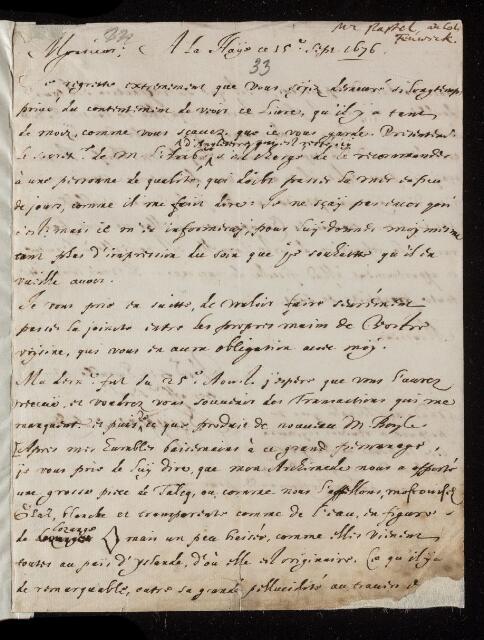 Mr
Fenwick.
Monsieur; A la Haÿe ce 15e Sept. 1676.
33
Je regrette extremement que vous soyez demeuré si longtemps
privé du contentement de veoir ce Livre, qu'il y a tant
de mois, comme vous scavez, que je vous garde. Présentement
d'Angleterre
le Secret.re de M. l'Amb.r a en charge de le recommander
à une personne de qualité, qui doibt passer la mer en peu
de jours, comme il me fait dire. Je ne sçay pas encor qui
c'est; mais il m'en informera, pour luy donner moy mesme
tant plus d'impression du soin que je souhaitte qu'il en
vueille avoir.
Je vous prie en suitte, de vouloir faire seurement
passer la joincte entre les propres mains de Vostre
voisine, qui vous en aura obligation avec moy.
Ma dern.e fut du 25e Aoust. j'espere que vous l'aurez
receue, et voudrez vous souvenir des Transactions qui me
manquent. et puis ce que produit de nouveau M. Boyle.
Apres mes humbles baisemains à ce grand personage,
je vous prie de luy dire, que mon Archimede nous a apporté
une grosse piece de Talcq, ou, comme nous l'appellons,
Glas, blanche et transparente comme de l'eau, en figure
de Lozange mais un peu biaisée, comme elles viennent
toutes au païs d'Yslande, d'où elle est originaire. Ce qu'il y a
de remarquable, outre sa grande pellucidité au travers de